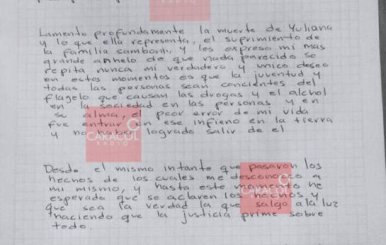 Lamento profundamente la muerte de Yuliana
y lo que ella representa, el suprimiento de
la familia samboní, y les expreso mi mas
grande anhelo de que nada parecido se
repita nunca mi verdadero y unico deseo
en estos momentos es que la juventud y
todas las personas sean concientes del
flagelo que causan las drogas y el alcohol
en la sociedad en las personas y en
su alma, el peor error de mi vida
fue entrar en ese infierno en la tierra
y no haber logrado salir de el
CARACOL
RADIO
Desde el mismo instante que pasaron los
hechos de los cuales me desconozco a
mi mismo, y hasta este momento he
esperado que se aclaren los hechos y
que sea la verdad la que salga a la luz
haciendo que la justicia prime sobre
todo.